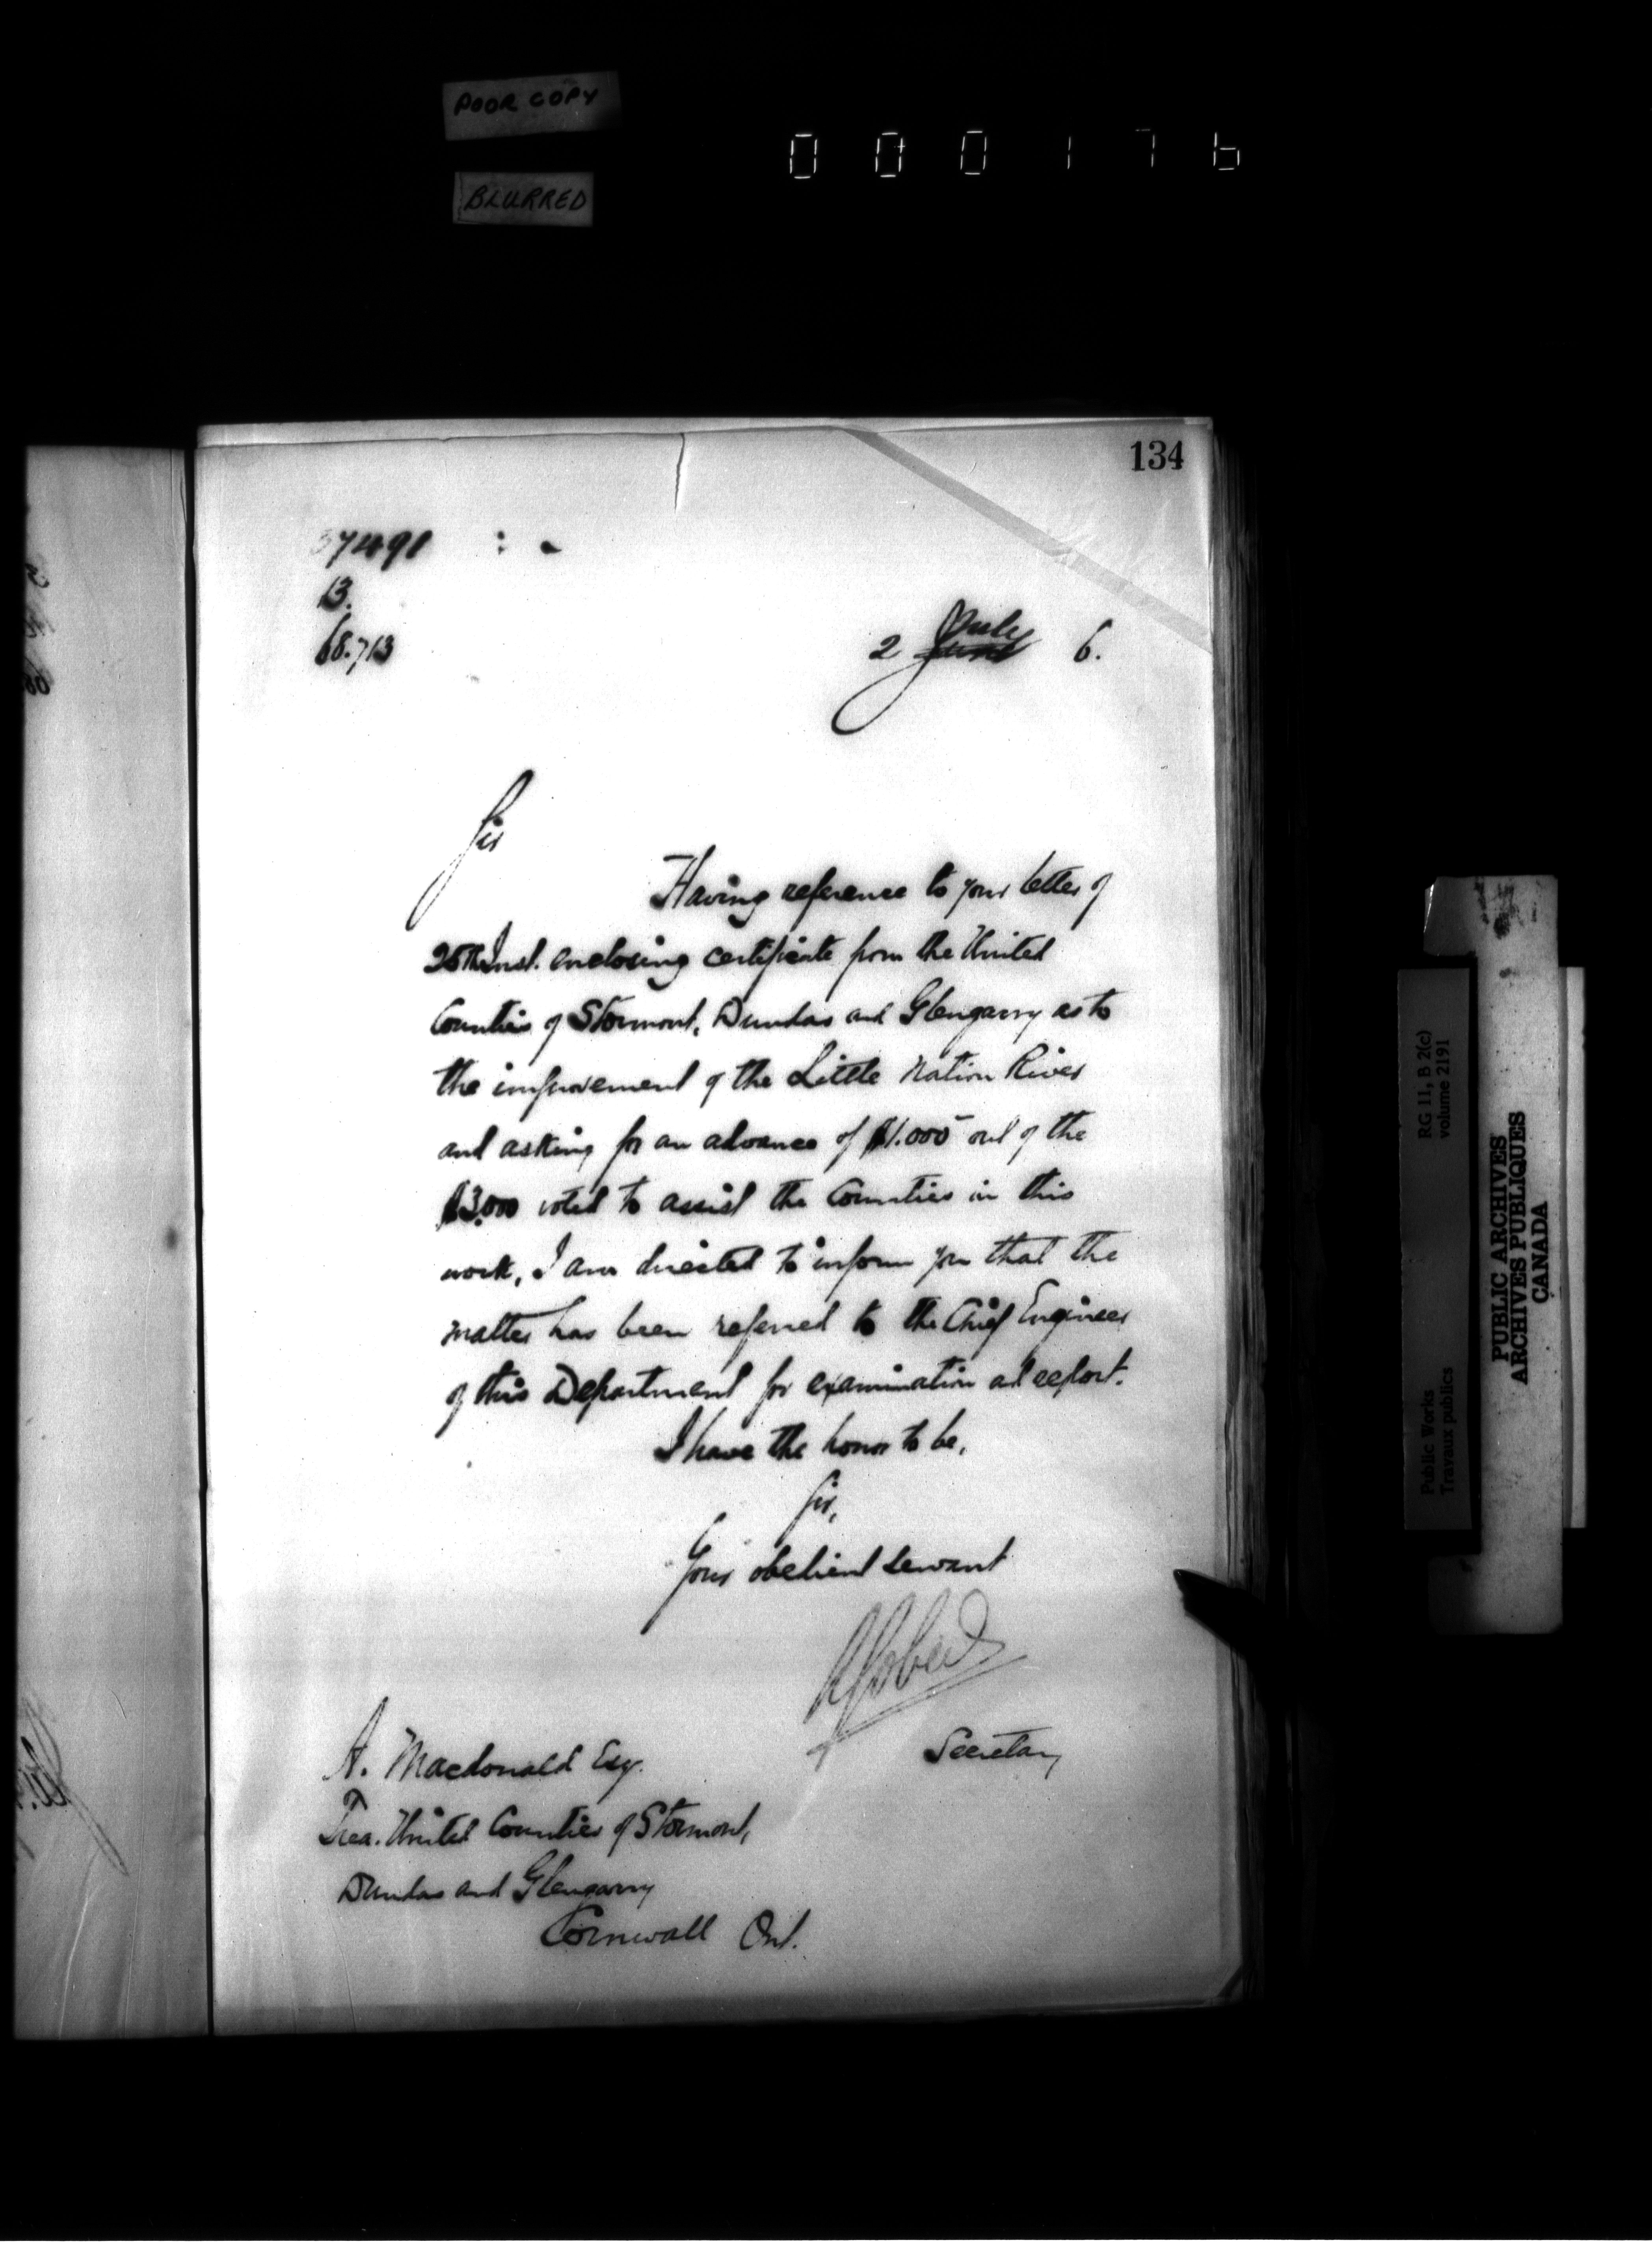 POOR COPY
000176
BLURRED
134
37491
13.
68.713
2 July June 6.
Sir
Having reference to your letter of
26th Inst. enclosing certificate from the United
Counties of Stormont, Dundas and Glengarry as to
the improvement of the Little Nation River
and asking for an advance of $1.000 out of the
$3.000 voted to assist the Counties in this
work, I am directed to inform you that the
matter has been referred to the Chief Engineer
of this Department for examination and report.
I have the honor to be,
Sir,
Your obedient servant
Secretary
A. Macdonald Esq.
Trea. United Counties of Stormont,
Dundas and Glengarry
Cornwall Ont.
RG 11, B 2(c)
volume 2191
Public Works
Travaux publics
PUBLIC ARCHIVES
ARCHIVES PUBLIQUES
CANADA